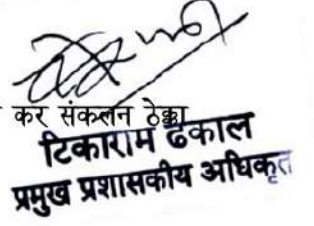 कर संकलन ठेक्का
टिकाराम ढकाल
प्रमुख प्रशासकीय अधिकृत